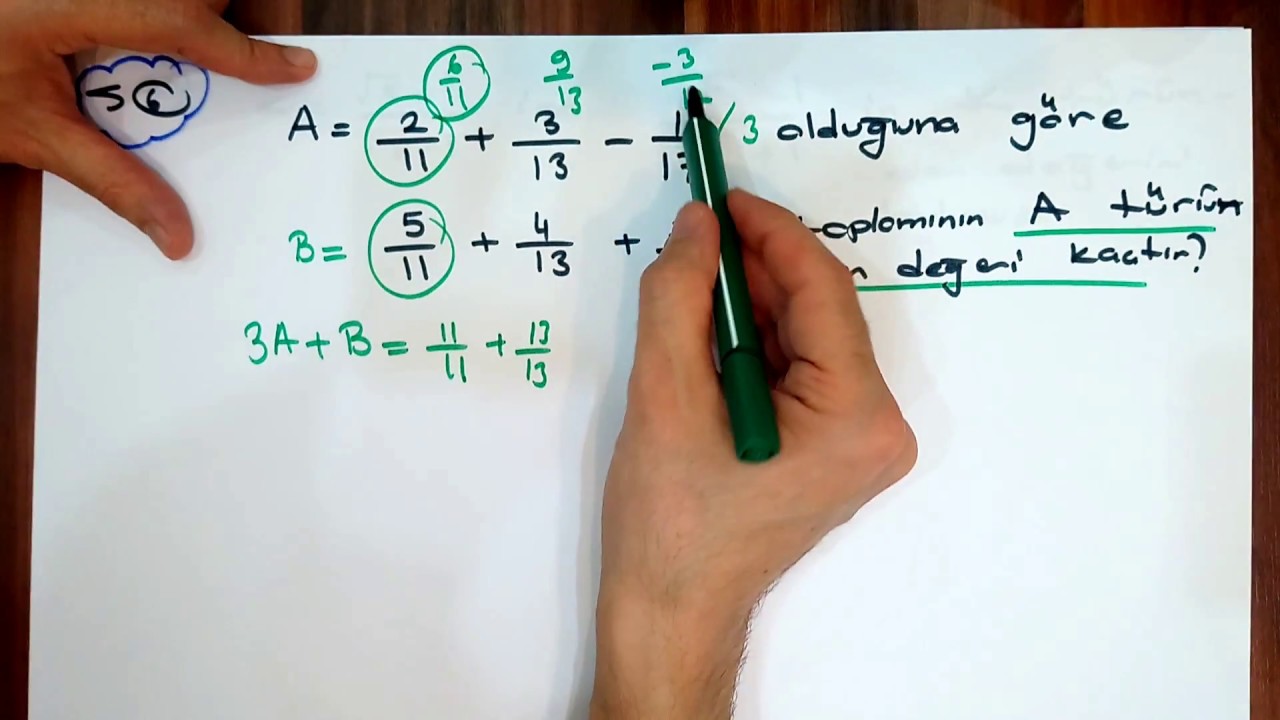 5 6
6/11 9/13 -3/
A = 2/11 + 3/13 - 1/ / 3 olduğuna göre
B = 5/11 + 4/13 + toplamının A türün
değeri kaçtır?
3A + B = 11/11 + 13/13